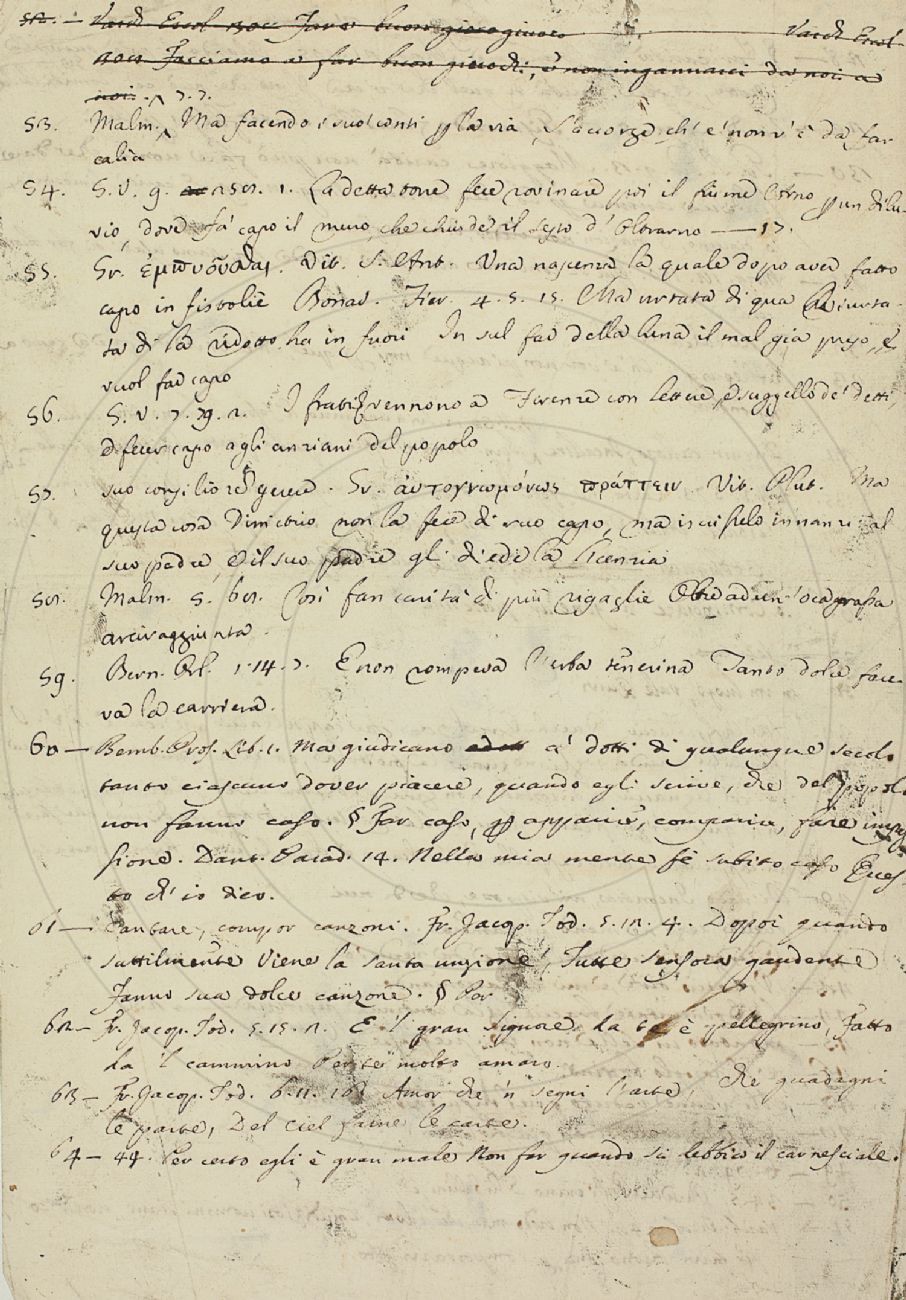 52. — Varch. Ercol. 302. Fare buon giuoco giuoco — Varch. Ercol.
302. Facciamo a far buon giuochi, e non ingannarci da noi a
noi. 77.
53. Malm. Ma facendo i suoi conti per la via S'accorge ch'e' non v'è da far
calìa
54. G. V. 9. 1. La detta torre fece rovinare poi il fiume Arno per un dilu-
vio, dove fa capo il muro, che chiude il sesto d'Oltrarno — 17.
55. Gr. Vit. S. Ant. Una nascenza la quale dopo aver fatto
capo in fistolie Bonar. Fier. 4. 5. 15. Ma urtata di qua Riurta-
ta di là ridotto ha in fuori In sul far della luna il mal già preso, e
vuol far capo
56. G. V. 7. I frati vennono a Firenze con lettere, e suggello de' detti,
e fecer capo agli anziani del popolo
57. suo consilio rem gerere. Gr. αὐτογνωμόνως πράττειν. Vit. Plut. Ma
questa cosa Dimitrio non la fece di suo capo, ma innanzi al
suo padre, e il suo padre gli diede la licenzia
58. Malm. 5. Così fan carità di più rigaglie Oltre ad un'oca grassa
arciraggiunta.
59. Bern. Orl. 1. 14. 7. E non rompeva l'erba tenerina Tanto dolce face-
va la carriera.
60 — Bemb. Pros. Lib. 1. Ma giudicano a' dotti di qualunque secolo
tanto ciascuno dover piacere, quando egli scrive, che del popolo
non fanno caso. § Far caso, per apparire, comparire, fare impres-
sione. Dant. Parad. 14. Nella mia mente fè subito caso Ques-
to ch'io dico.
61 — Cantare, compor canzoni. Fr. Jacop. Tod. 5. 12. 4. Dopoi quando
sottilmente Viene la santa unzione, Tutte gaudente
Fanno sua dolce canzone. § Por
62 — Fr. Jacop. Tod. 5. 15. 2. E 'l gran Signore, da te è pellegrino, Fatto
ha 'l cammino Per te molto amaro.
63 — Fr. Jacop. Tod. 6. 11. Amor che 'n segni l'arte, Che guadagni
le parte, Del ciel farne le carte.
64 — 44. Per certo egli è gran male Non far quando si debbia il carnesciale.